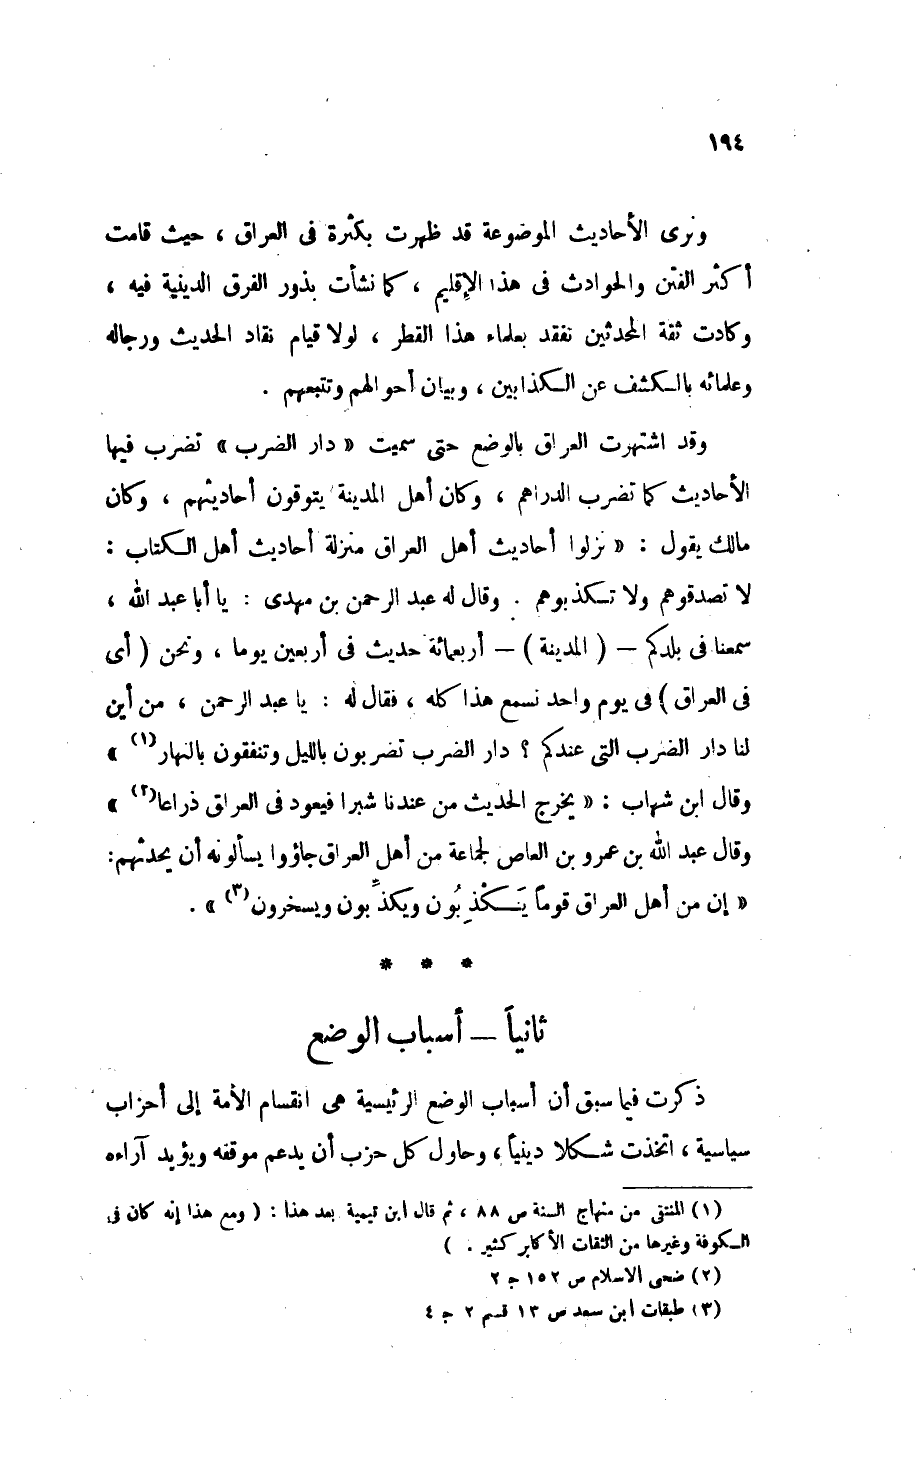 ١٩٤
ونرى الأحاديث الموضوعة قد ظهرت بكثرة فى العراق ، حيث قامت
أكثر الفتن والحوادث فى هذا الإقليم ، كما نشأت بذور الفرق الدينية فيه ،
وكادت ثقة المحدثين تفقد بعلماء هذا القطر ، لولا قيام نقاد الحديث ورجاله
وعلمائه بالكشف عن الكذابين ، وبيان أحوالهم وتتبعهم .
وقد اشتهرت العراق بالوضع حتى سميت « دار الضرب » تضرب فيها
الأحاديث كما تضرب الدراهم ، وكان أهل المدينة يتوقون أحاديثهم ، وكان
مالك يقول : « نزلوا أحاديث أهل العراق منزلة أحاديث أهل الكتاب :
لا تصدقوهم ولا تكذبوهم . وقال له عبد الرحمن بن مهدى : يا أبا عبد الله ،
سمعنا فى بلدكم – ( المدينة ) – أربعمائة حديث فى أربعين يوما ، ونحن ( أى
فى العراق ) فى يوم واحد نسمع هذا كله ، فقال له : يا عبد الرحمن ، من أين
لنا دار الضرب التى عندكم ؟ دار الضرب تضربون بالليل وتنفقون بالنهار(١) »
وقال ابن شهاب : « يخرج الحديث من عندنا شبرا فيعود فى العراق ذراعا(٢) »
وقال عبد الله بن عمرو بن العاص لجماعة من أهل العراق جاؤوا يسألونه أن يحدثهم:
« إن من أهل العراق قوماً يَكْذِبُون ويكذِّبون ويسخرون(٣) » .
* * *
ثانياً – أسباب الوضع
ذكرت فيما سبق أن أسباب الوضع الرئيسية هى انقسام الأمة إلى أحزاب
سياسية ، اتخذت شكلا دينياً ، وحاول كل حزب أن يدعم موقفه ويؤيد آراءه
(١) المنتقى من منهاج السنة ص ٨٨ ، ثم قال ابن تيمية بعد هذا : ( ومع هذا إنه كان فى
الكوفة وغيرها من الثقات الأكابر كثير . )
(٢) ضحى الاسلام ص ١٥٢ ج ٢
(٣) طبقات ابن سعد ص ١٣ قسم ٢ ج ٤